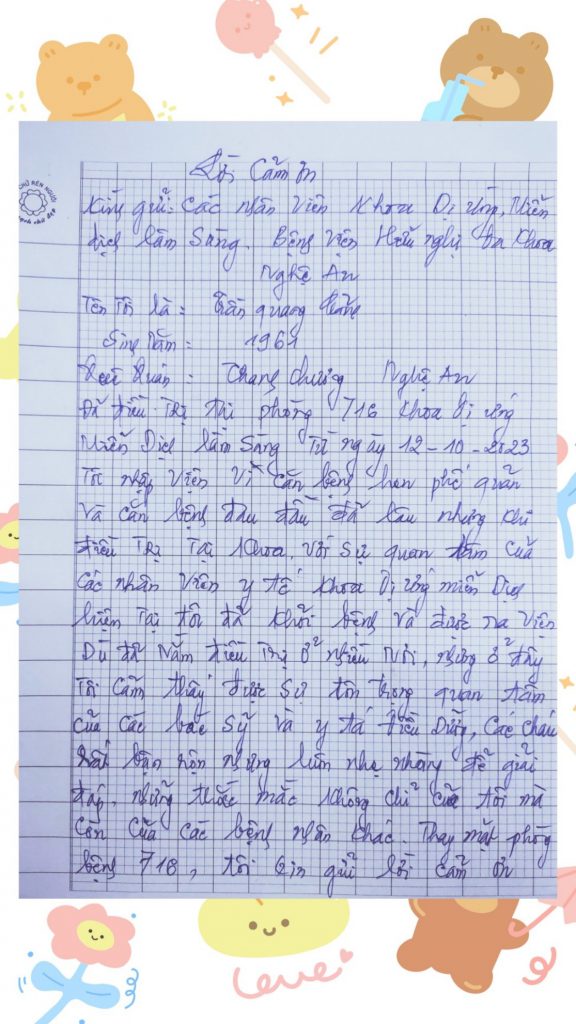 Lời Cảm Ơn
Kính gửi: Các nhân viên Khoa Dị ứng, Miễn
dịch lâm sàng. Bệnh viện Hữu nghị Đa Khoa
Nghệ An
Tên Tôi là: Trần quang
Sinh Năm: 1961
Quê Quán: Thanh Chương Nghệ An
Đã điều Trị Tại phòng 716 Khoa Dị ứng
Miễn Dịch lâm Sàng Từ ngày 12-10-2023
Tôi nhập Viện Vì căn bệnh hen phế quản
Và căn bệnh đau đầu đã lâu nhưng khi
điều Trị Tại Khoa, Với Sự quan tâm của
Các nhân Viên y tế Khoa Dị ứng miễn Dịch
hiện Tại tôi đã Khỏi bệnh Và được ra Viện
Dù đã Nằm điều Trị ở nhiều Nơi, nhưng ở đây
Tôi Cảm thấy được Sự tôn trọng quan tâm
của các bác Sỹ Và y tá điều Dưỡng, Các cháu
Rất bận rộn nhưng luôn nhẹ nhàng để giải
đáp, những thắc mắc Không chỉ của tôi mà
Còn Của các bệnh nhân khác. Thay mặt phòng
bệnh 716, tôi Xin gửi lời cảm ơn
CHỮ RÈN NGƯỜI
Love